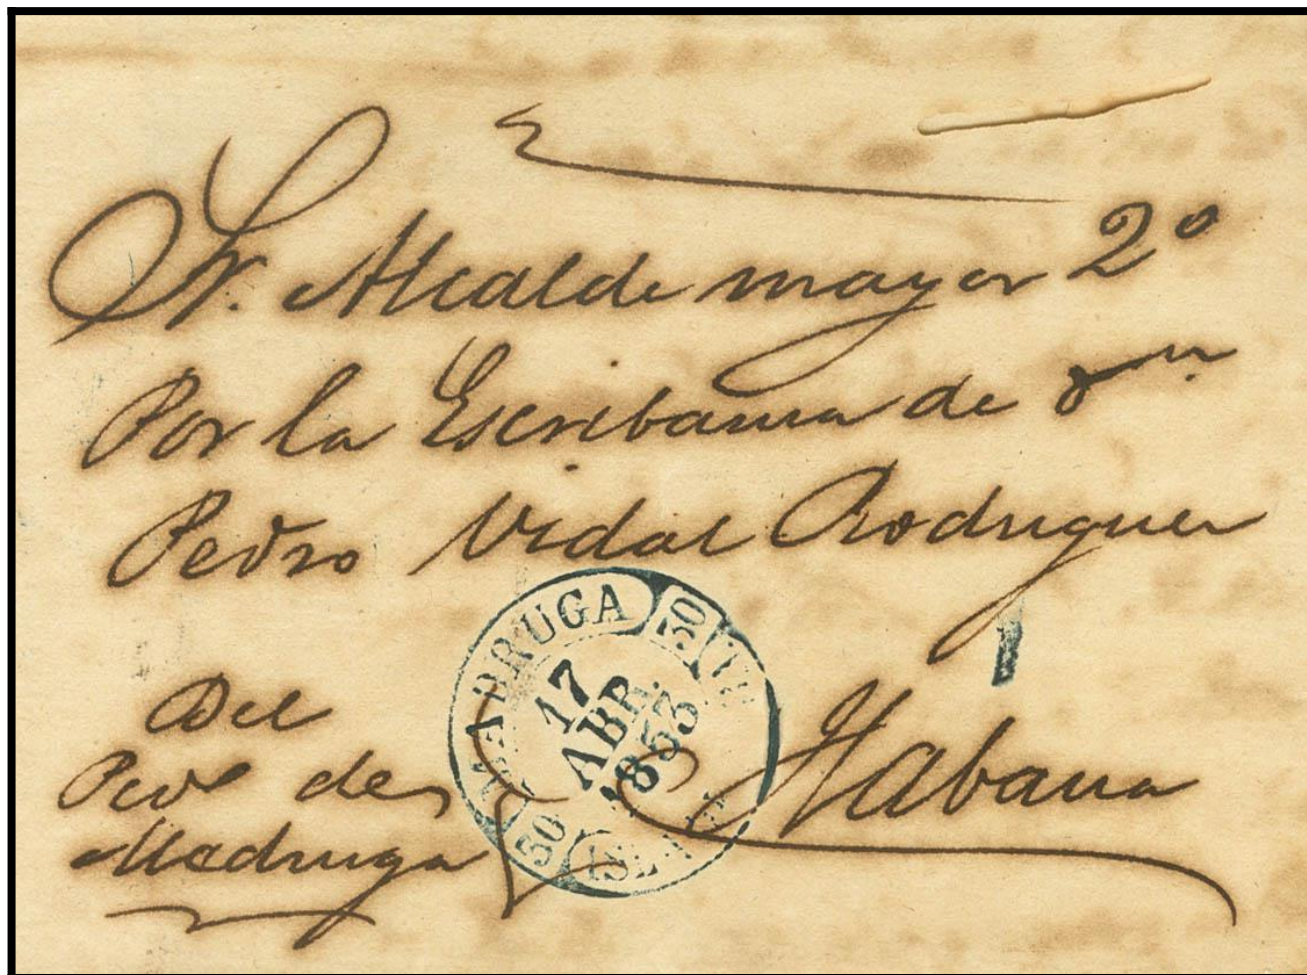 Sr. Alcalde mayor 2º
Por la Escribania de Dⁿ
Pedro Vidal Rodriguez
MADRUGA
17
ABR.
1853
50
50
1
Del
de
Madruga
Habana